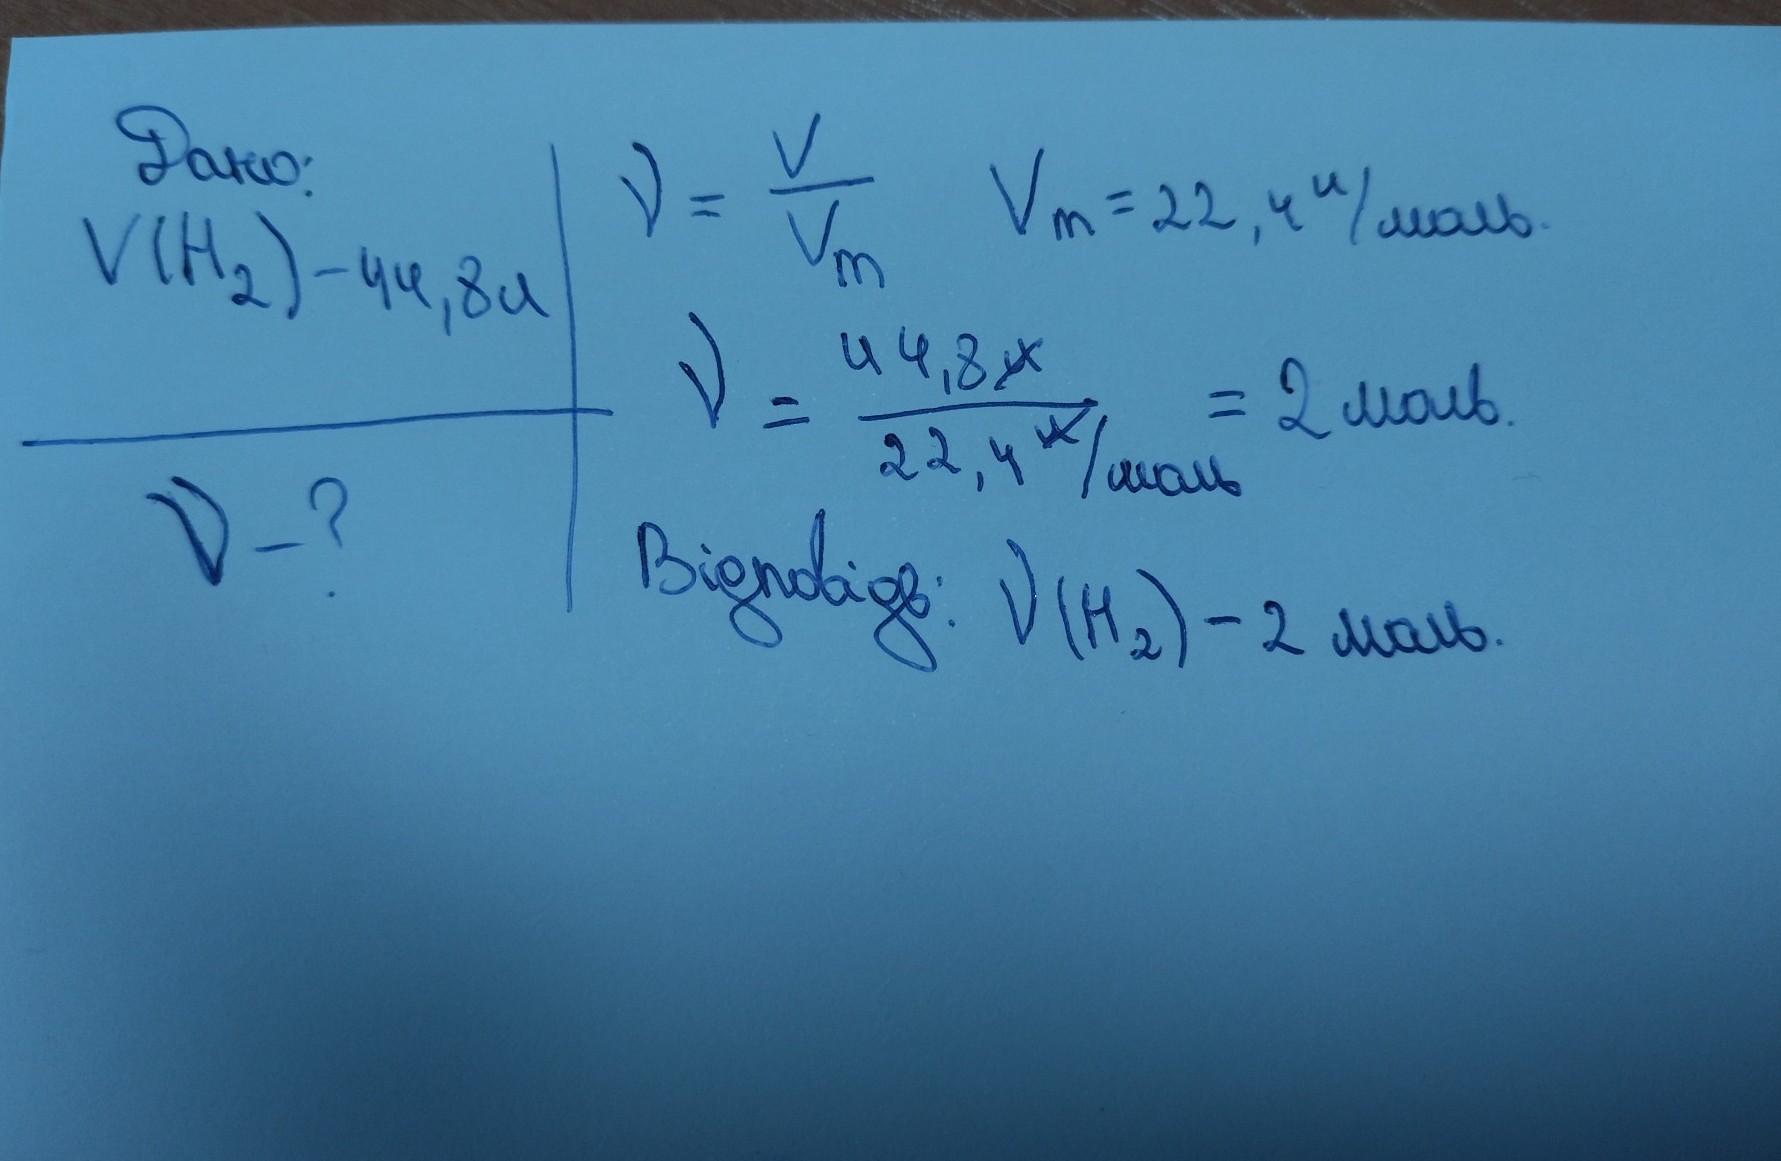 Дано:
V(H₂) – 44,8л
ν – ?
ν = V/Vm   Vm = 22,4 л/моль.
ν = 44,8л / 22,4 л/моль = 2 моль.
Відповідь: ν(H₂) – 2 моль.